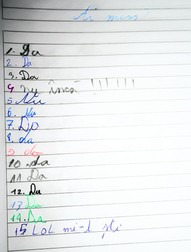 1. Da
2. Da
3. Da
4 Nu încă !!!!!!!
5. Nu
6. Nu
7. Da
8. da
9.
10. da
11. Da
12. Da
13
14. Da
15 LoL mi-l